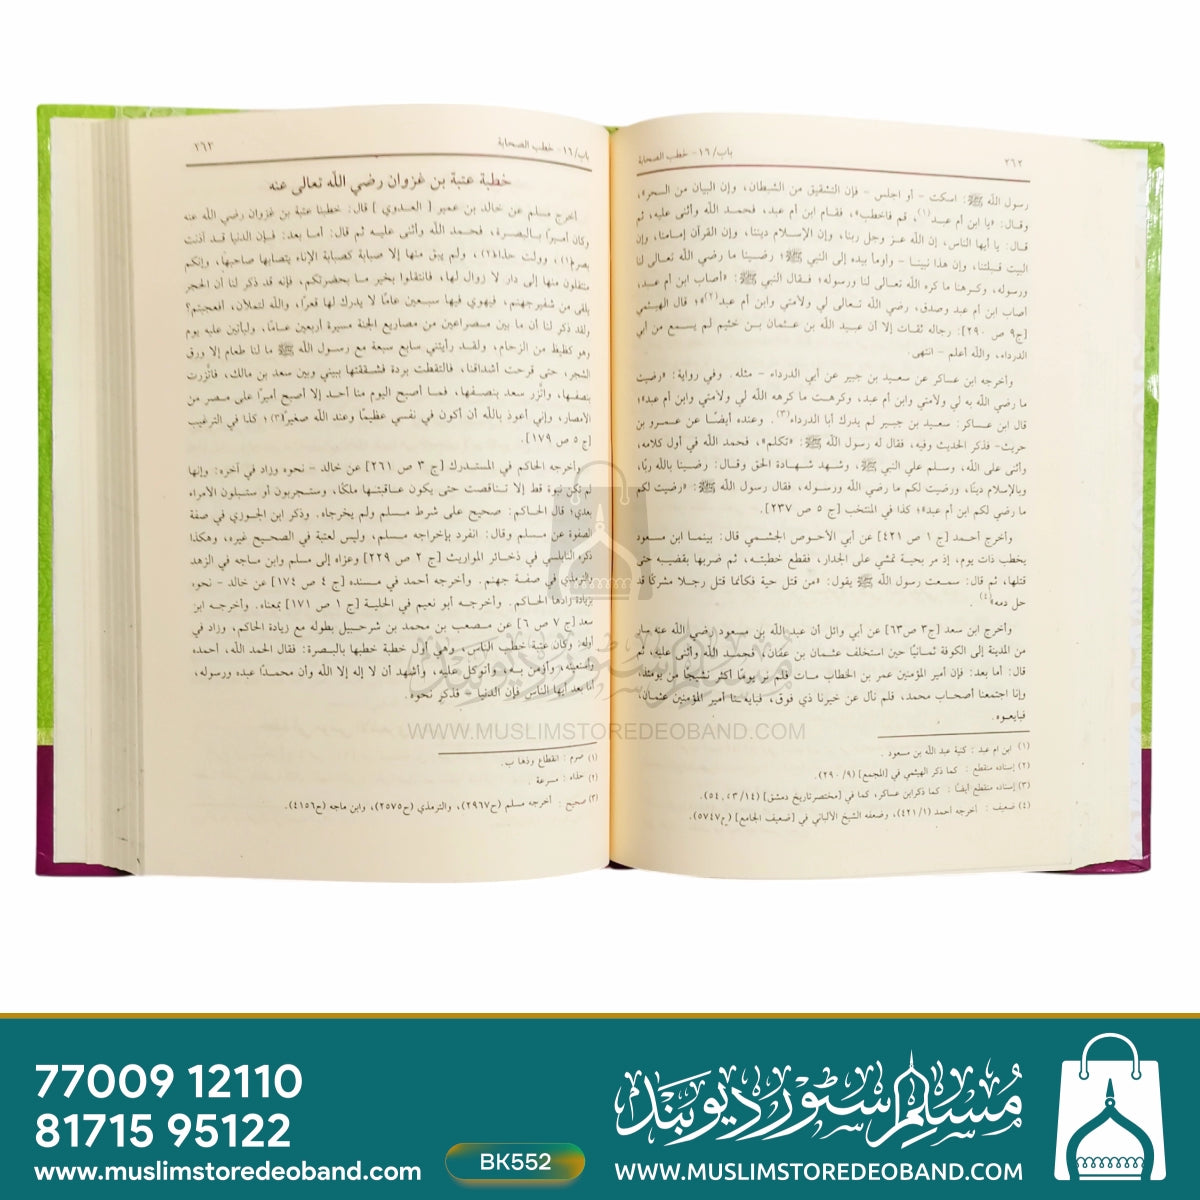 باب/١٦- خطب الصحابة
٢٦٢
رسول اللّه ﷺ: اسكت - أو اجلس - فإن التشقيق من الشيطان، وإن البيان من السحر»،
وقال: «يا ابن أم عبد(١)، قم فاخطب»، فقام ابن أم عبد، فحمد اللّه وأثنى عليه، ثم
قال: يا أيها الناس، إن اللّه عز وجل ربنا، وإن الإسلام ديننا، وإن القرآن إمامنا، وإن
البيت قبلتنا، وإن هذا نبينا - وأوما بيده إلى النبي ﷺ؛ رضينا ما رضي اللّه تعالى لنا
ورسوله، وكرهنا ما كره اللّه تعالى لنا ورسوله؛ فقال النبي ﷺ: «أصاب ابن أم عبد،
أصاب ابن أم عبد وصدق، رضي اللّه تعالى لي ولأمتي وابن أم عبد(٢)»؛ قال الهيثمي
[ج٩ ص ٢٩٠]: رجاله ثقات إلا أن عبيد اللّه بن عثمان بن خثيم لم يسمع من أبي
الدرداء، واللّه أعلم - انتهى.
وأخرجه ابن عساكر عن سعيد بن جبير عن أبي الدرداء - مثله. وفي رواية: «رضيت
ما رضي اللّه به لي ولأمتي وابن أم عبد، وكرهت ما كرهه اللّه لي ولأمتي وابن أم عبد»؛
قال ابن عساكر: سعيد بن جبير لم يدرك أبا الدرداء(٣). وعنده أيضًا عن عمرو بن
حريث- فذكر الحديث وفيه، فقال له رسول اللّه ﷺ: «تكلم»، فحمد اللّه في أول كلامه،
وأثنى على اللّه، وسلم علي النبي ﷺ، وشهد شهادة الحق وقال: رضينا باللّه ربًا،
وبالإسلام دينًا، ورضيت لكم ما رضي اللّه ورسوله، فقال رسول اللّه ﷺ: «رضيت لكم
ما رضي لكم ابن أم عبد»؛ كذا في المنتخب [ج ٥ ص ٢٣٧].
وأخرج أحمد [ج ١ ص ٤٢١] عن أبي الأحوص الجشمي قال: بينما ابن مسعود
يخطب ذات يوم، إذ مر بحية تمشي على الجدار، فقطع خطبته، ثم ضربها بقضيبه حتى
قتلها، ثم قال: سمعت رسول اللّه ﷺ يقول: «من قتل حية فكأنما قتل رجلا مشركًا قد
حل دمه»(٤).
وأخرج ابن سعد [ج٣ ص٦٣] عن أبي وائل أن عبد اللّه بن مسعود رضي اللّه عنه سار
من المدينة إلى الكوفة ثمانيًا حين استخلف عثمان بن عفان، فحمد اللّه وأثنى عليه، ثم
قال: أما بعد: فإن أمير المؤمنين عمر بن الخطاب مات فلم نر يومًا أكثر نشيجًا من يومئذ،
وإنا اجتمعنا أصحاب محمد، فلم نأل عن خيرنا ذي فوق، فبايعنا أمير المؤمنين عثمان،
فبايعوه.
(١) ابن ام عبد : كنية عبد اللّه بن مسعود .
(٢) إسناده منقطع : كما ذكر الهيثمي في [المجمع] (٩/ ٢٩٠).
(٣) إسناده منقطع أيضًا : كما ذكر ابن عساكر، كما في [مختصر تاريخ دمشق] (١٤/ ٥٤،٠٣).
(٤) ضعيف : أخرجه أحمد (١/ ٤٢١)، وضعفه الشيخ الألباني في [ضعيف الجامع] (ح٥٧٤٧).
باب/١٦- خطب الصحابة
٢٦٣
خطبة عتبة بن غزوان رضي اللّه تعالى عنه
أخرج مسلم عن خالد بن عمير [ العدوي ] قال: خطبنا عتبة بن غزوان رضي اللّه عنه
وكان أميرًا بالبصرة، فحمد اللّه وأثنى عليه ثم قال: أما بعد: فإن الدنيا قد آذنت
بصرم(١)، وولت حذاء(٢)، ولم يبق منها إلا صبابة كصبابة الإناء يتصابها صاحبها، وإنكم
منتقلون منها إلى دار لا زوال لها، فانتقلوا بخير ما بحضرتكم، فإنه قد ذكر لنا أن الحجر
يلقى من شفير جهنم، فيهوي فيها سبعين عامًا لا يدرك لها قعرًا، واللّه لتملأن، أفعجبتم؟
ولقد ذكر لنا أن ما بين مصراعين من مصاريع الجنة مسيرة أربعين عامًا، وليأتين عليه يوم
وهو كظيظ من الزحام، ولقد رأيتني سابع سبعة مع رسول اللّه ﷺ ما لنا طعام إلا ورق
الشجر، حتى قرحت أشداقنا، فالتقطت بردة فشققتها بيني وبين سعد بن مالك، فاتزرت
بنصفها، واتزر سعد بنصفها، فما أصبح اليوم منا أحد إلا أصبح أميرًا على مصر من
الأمصار، وإني أعوذ باللّه أن أكون في نفسي عظيمًا وعند اللّه صغيرًا(٣)؛ كذا في الترغيب
[ج ٥ ص ١٧٩].
وأخرجه الحاكم في المستدرك [ج ٣ ص ٢٦١] عن خالد - نحوه وزاد في آخره: وإنها
لم تكن نبوة قط إلا تناقصت حتى يكون عاقبتها ملكًا، وستجربون أو ستبلون الأمراء
بعدي؛ قال الحاكم: صحيح على شرط مسلم ولم يخرجاه. وذكر ابن الجوزي في صفة
الصفوة عن مسلم وقال: انفرد بإخراجه مسلم، وليس لعتبة في الصحيح غيره، وهكذا
ذكره النابلسي في ذخائر المواريث [ج ٢ ص ٢٢٩] وعزاه إلى مسلم وابن ماجه في الزهد
والترمذي في صفة جهنم. وأخرجه أحمد في مسنده [ج ٤ ص ١٧٤] عن خالد - نحوه
بزيادة زادها الحاكم. وأخرجه أبو نعيم في الحلية [ج ١ ص ١٧١] بمعناه. وأخرجه ابن
سعد [ج ٧ ص ٦] عن مصعب بن محمد بن شرحبيل بطوله مع زيادة الحاكم، وزاد في
أوله: وكان عتبة خطب الناس، وهي أول خطبة خطبها بالبصرة: فقال الحمد اللّه، أحمده
وأستعينه، وأومن به وأتوكل عليه، وأشهد أن لا إله إلا اللّه وأن محمدًا عبده ورسوله،
أما بعد أيها الناس فإن الدنيا - فذكر نحوه.
(١) صرم : انقطاع وذهاب.
(٢) حذاء : مسرعة .
(٣) صحيح : أخرجه مسلم (ح٢٩٦٧)، والترمذي (ح٢٥٧٥)، وابن ماجه (ح٤١٥٦).
مسلم سٹور دیوبند
WWW.MUSLIMSTOREDEOBAND.COM
77009 12110
81715 95122
www.muslimstoredeoband.com
BK552
مسلم سٹور دیوبند
WWW.MUSLIMSTOREDEOBAND.COM